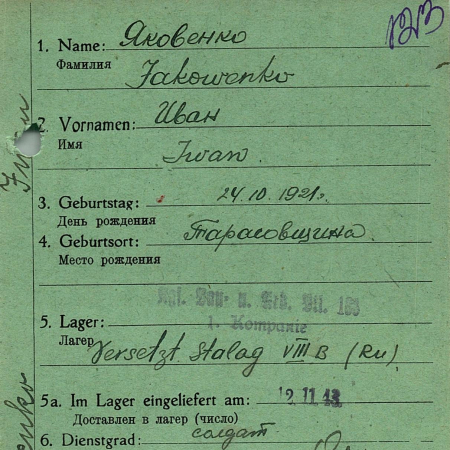 1. Name: Яковенко
Фамилия
Jakowenko
2. Vornamen: Иван
Имя
Iwan.
3. Geburtstag: 24.10.1921г.
День рождения
4. Geburtsort: Тарасовщина.
Место рождения
Kgf. Bau- u. Arb. Btl. 183
1. Kompanie
5. Lager:
Лагер Versetzt Stalag VIII B (Ru)
5a. Im Lager eingeliefert am: 12 11 43
Доставлен в лагер (число)
6. Dienstgrad: солдат